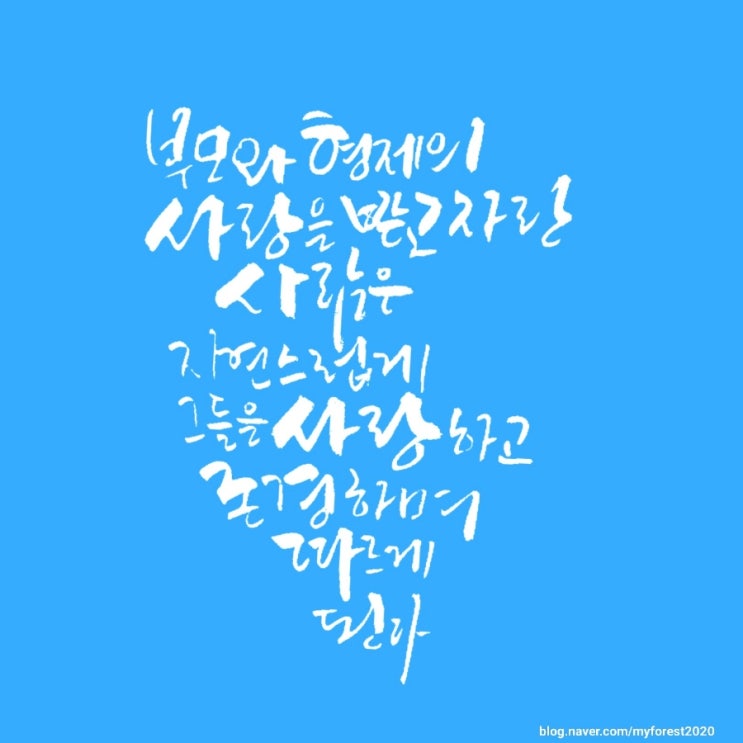 부모와 형제의
사랑을 받고 자란
사람은
자연스럽게
그들을 사랑하고
존경하며
따르게
된다
blog.naver.com/myforest2020